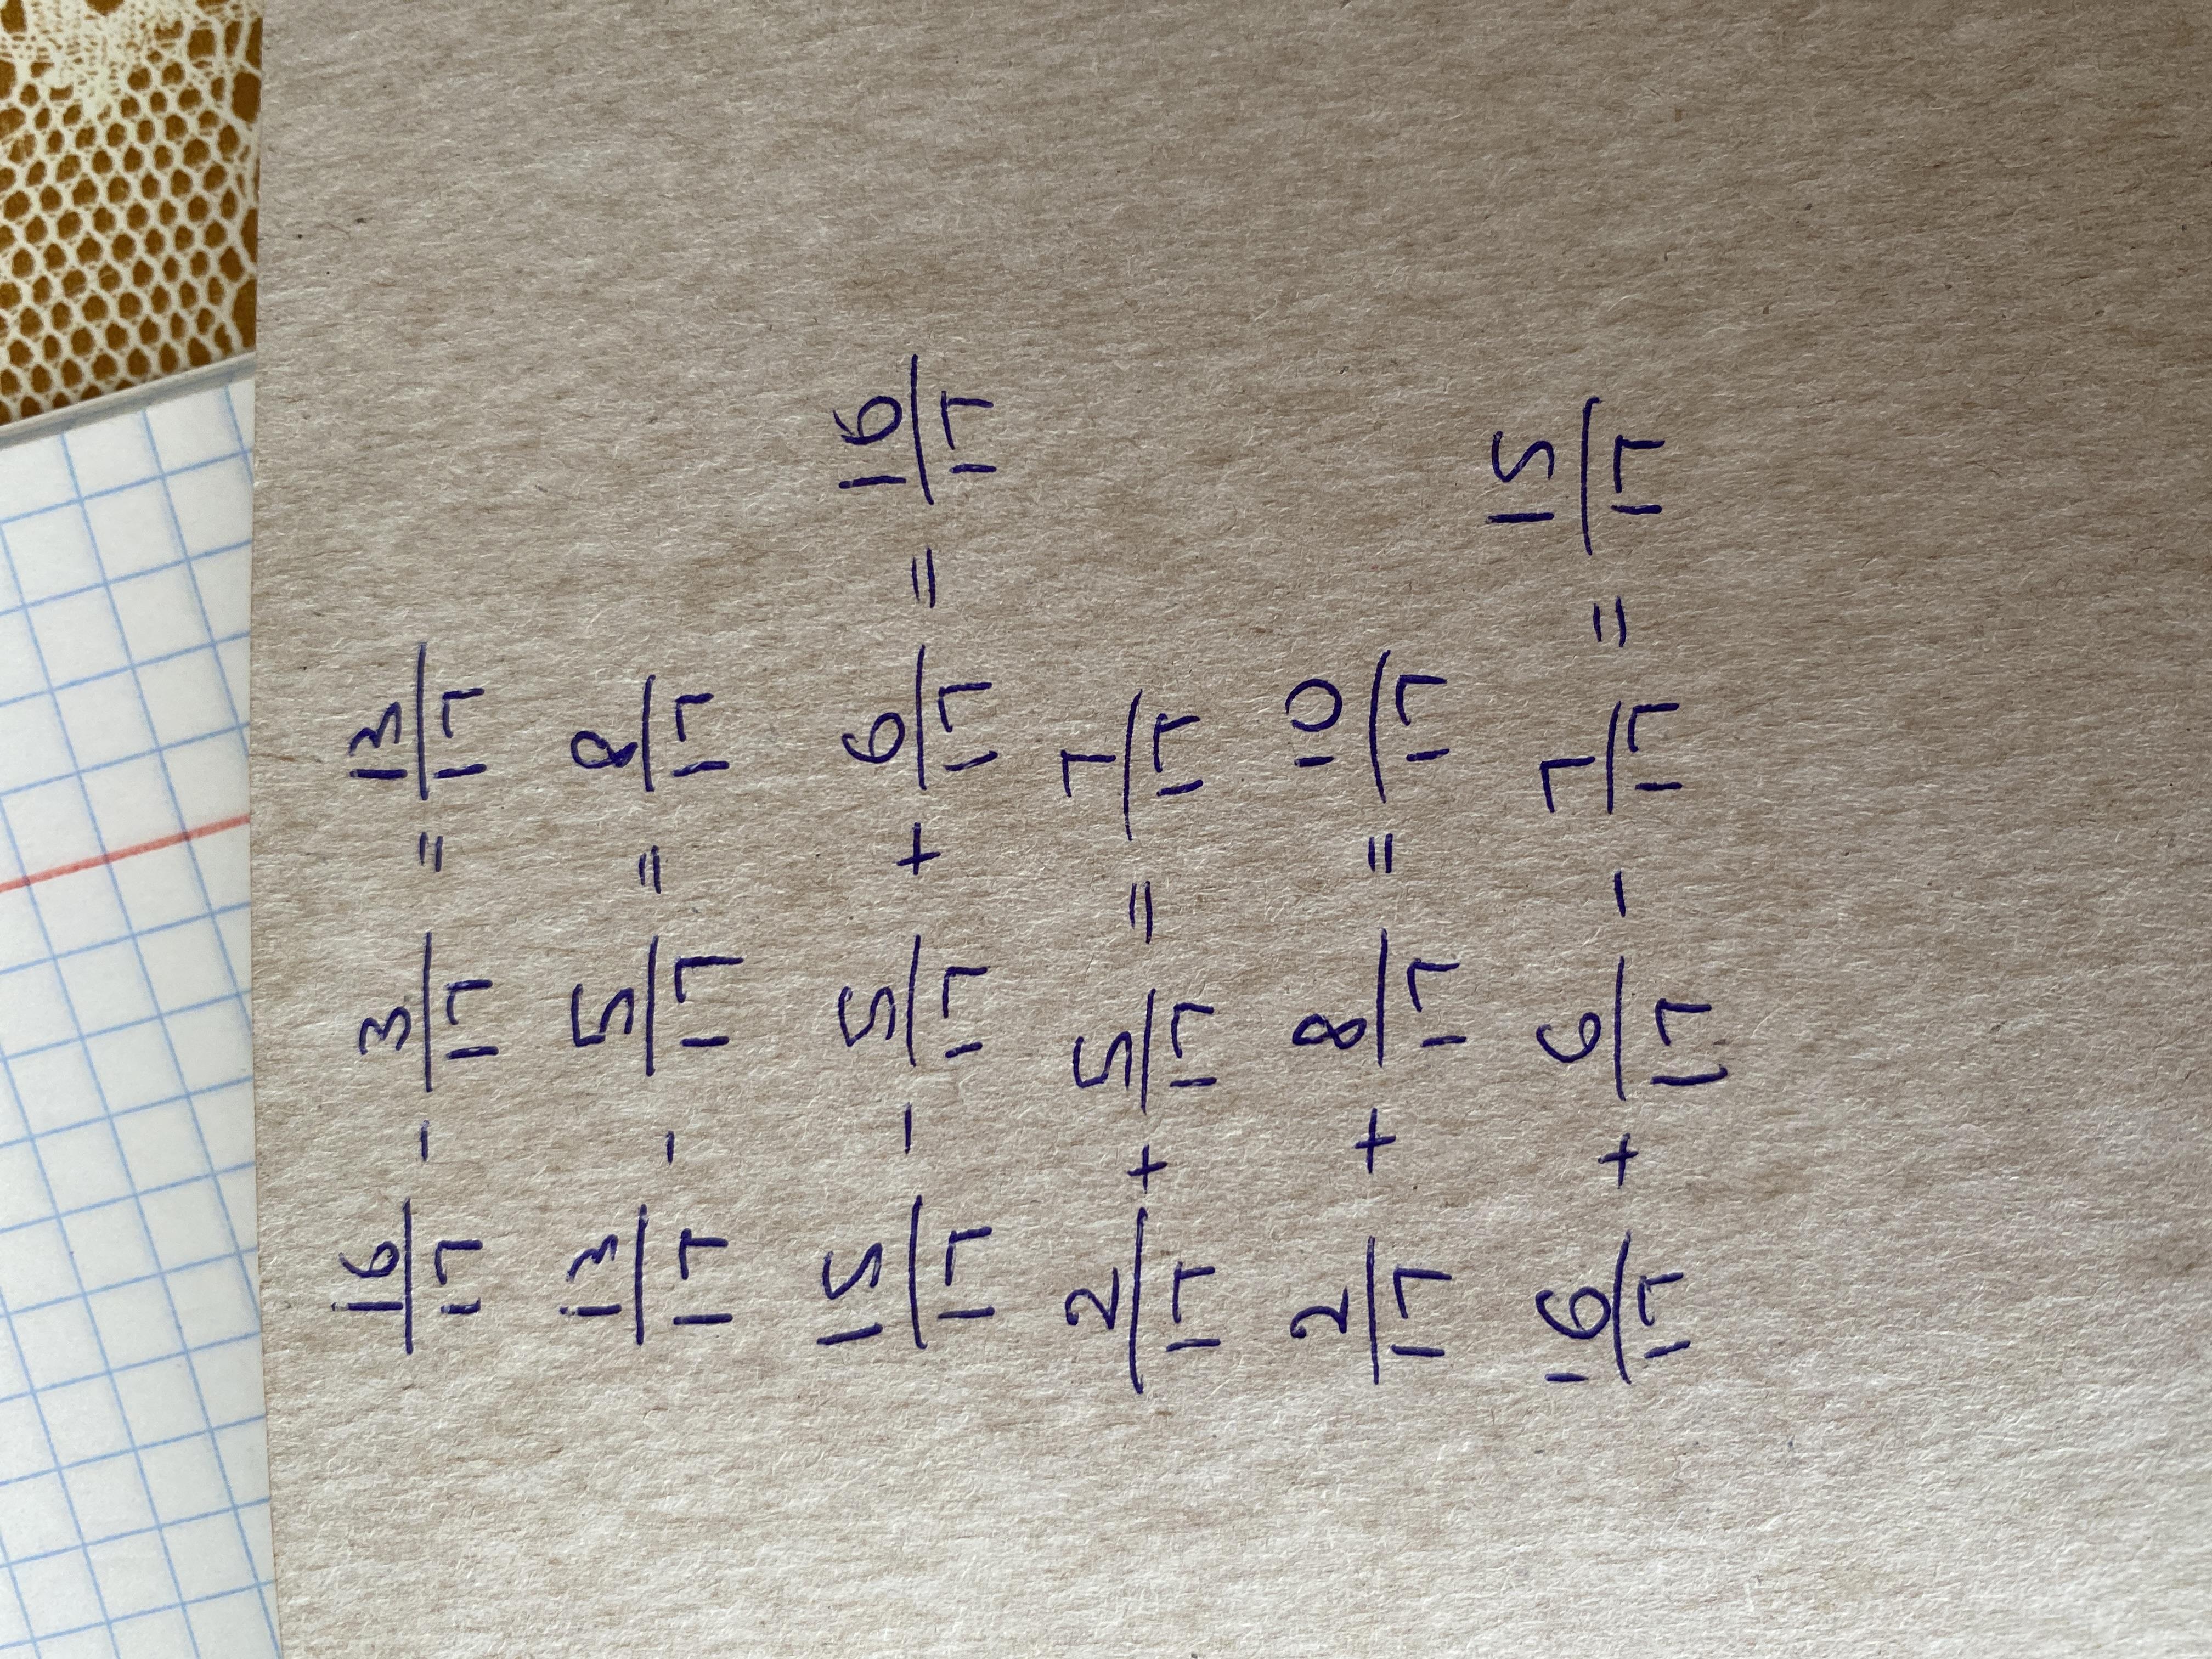 16/17 - 3/17 = 13/17
13/17 - 5/17 = 8/17
15/17 - 5/17 + 6/17 = 16/17
2/17 + 5/17 = 7/17
2/17 + 8/17 = 10/17
16/17 + 6/17 - 7/17 = 15/17